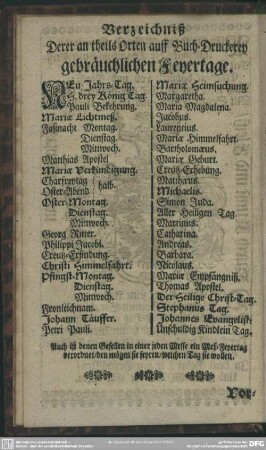 Verzeichniß
Derer an theils Orten auff Buch-Druckerey
gebräuchlichen Feyertage.
NEu-Jahrs-Tag.
H. drey König Tag.
Pauli Bekehrung.
Mariæ Lichtmeß.
Faßnacht Montag.
Dienstag.
Mittwoch.
Matthias Apostel
Mariä Verkündigung.
Charfreytag
Oster-Abend } halb.
Oster-Montag.
Dienstag.
Mittwoch.
Georg Ritter.
Philippi Jacobi.
Creutz-Erfindung.
Christi Himmelfahrt.
Pfingst-Montag.
Dienstag.
Mittwoch.
Fronleichnam.
Johann Täuffer.
Petri Pauli.
Mariæ Heimsuchung.
Margaretha.
Maria Magdalena.
Jacobus.
Laurentius.
Mariæ Himmelfahrt.
Bartholomæus.
Mariæ Geburt.
Creutz-Erhebung.
Matthæus.
Michaelis.
Simon Juda.
Aller Heiligen Tag
Martinus.
Catharina.
Andreas.
Barbara.
Nicolaus.
Mariæ Empfängniß.
Thomas Apostel.
Der Heilige Christ-Tag.
Stephanus Tag.
Johannes Evangelist.
Unschuldig Kindlein Tag.
Auch ist denen Gesellen in einer jeden Messe ein Meß-Feyertag
verordnet/den mögen sie feyren/welchen Tag sie wollen.
Vor-